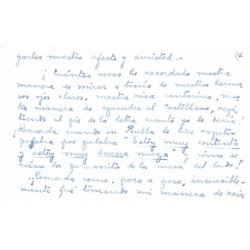 garlos nuestro afecto y amistad..-
¡Cuántas veces he recordado nuestra
manera de mirar a través de nuestros hermo
sos ojos claros, nuestra risa cantarina, nues
tra manera de aprender el Castellano, repi
tiendo al pie de la letra cuanto yo le decía!
¡Recuerda cuando en Puebla le hice repetir
palabra por palabra "Estoy muy contenta
y estoy muy buena moza"! ¡cómo se
reían los gringuitos de la mesa del lado!"
Recuerda como, poco a poco, insensible-
mente fué tomando mi manera de reir